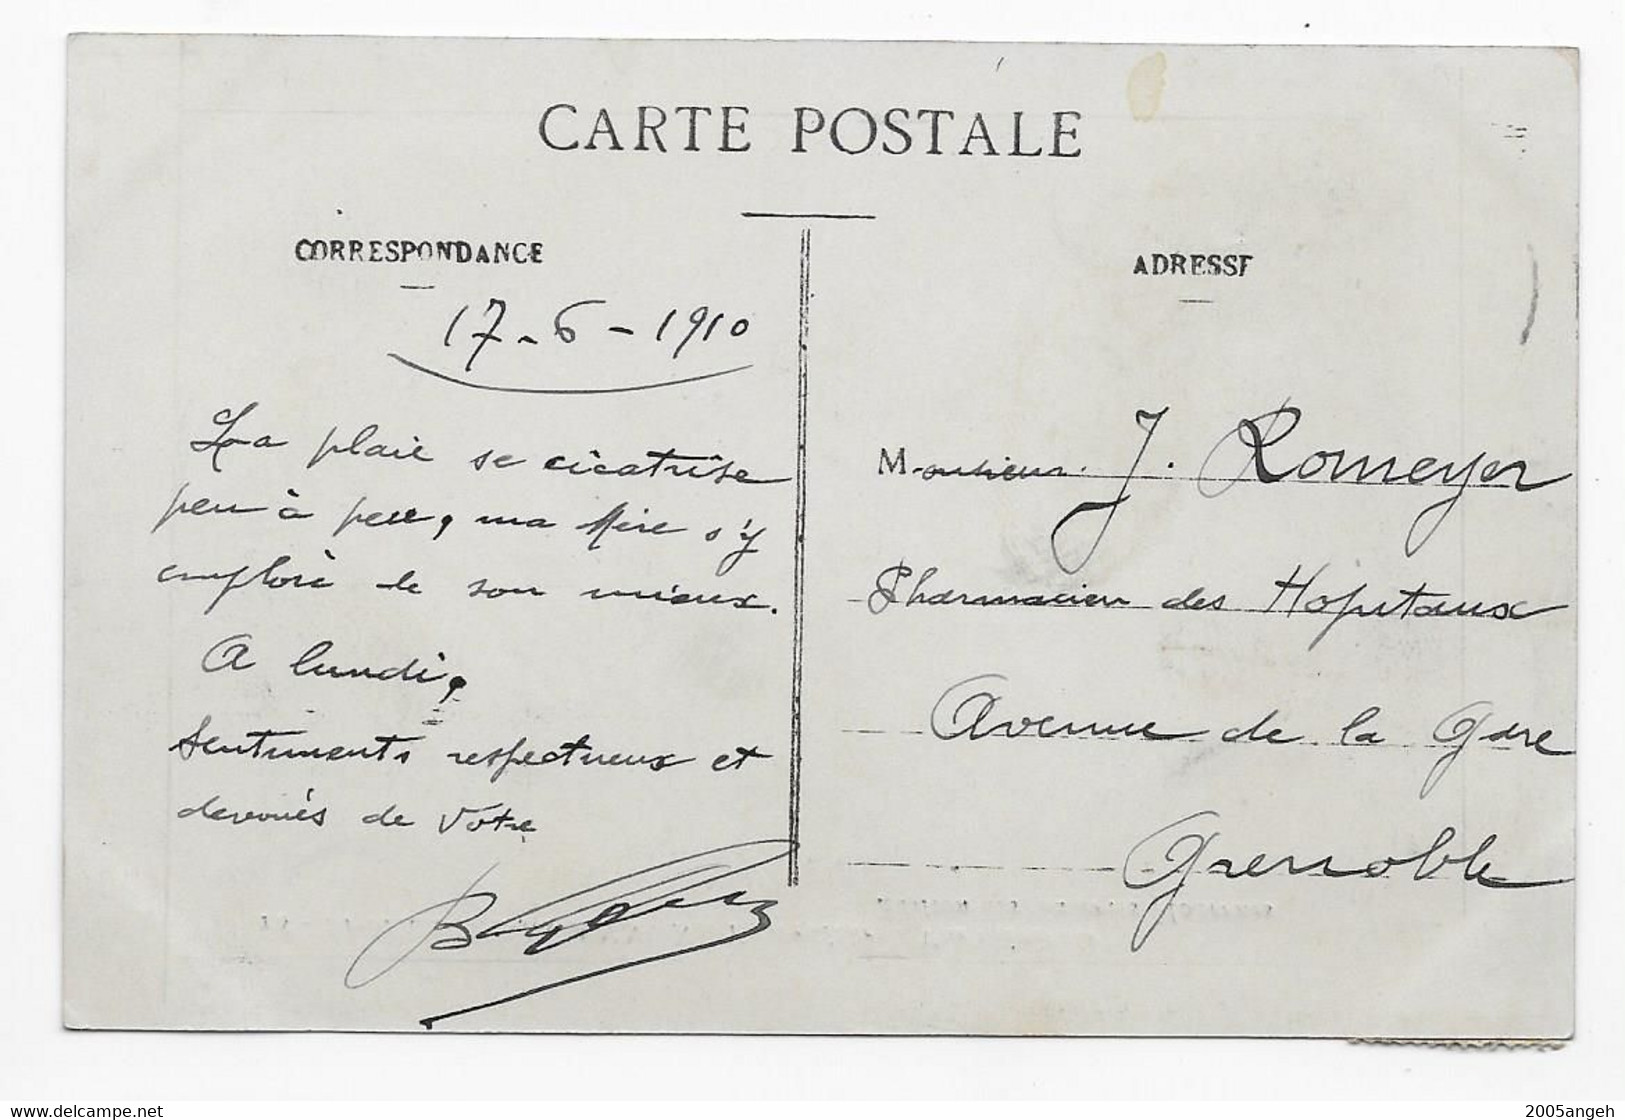 CARTE POSTALE
CORRESPONDANCE
17-6-1910
La plaie se cicatrise
peu à peu, ma Mère s'y
emploie de son mieux.
A lundi,
Sentiments respectueux et
dévoués de Votre
ADRESSE
Monsieur J. Romeyer
Pharmacien des Hopitaux
Avenue de la Gare
Grenoble
delcampe.net
2005angeh